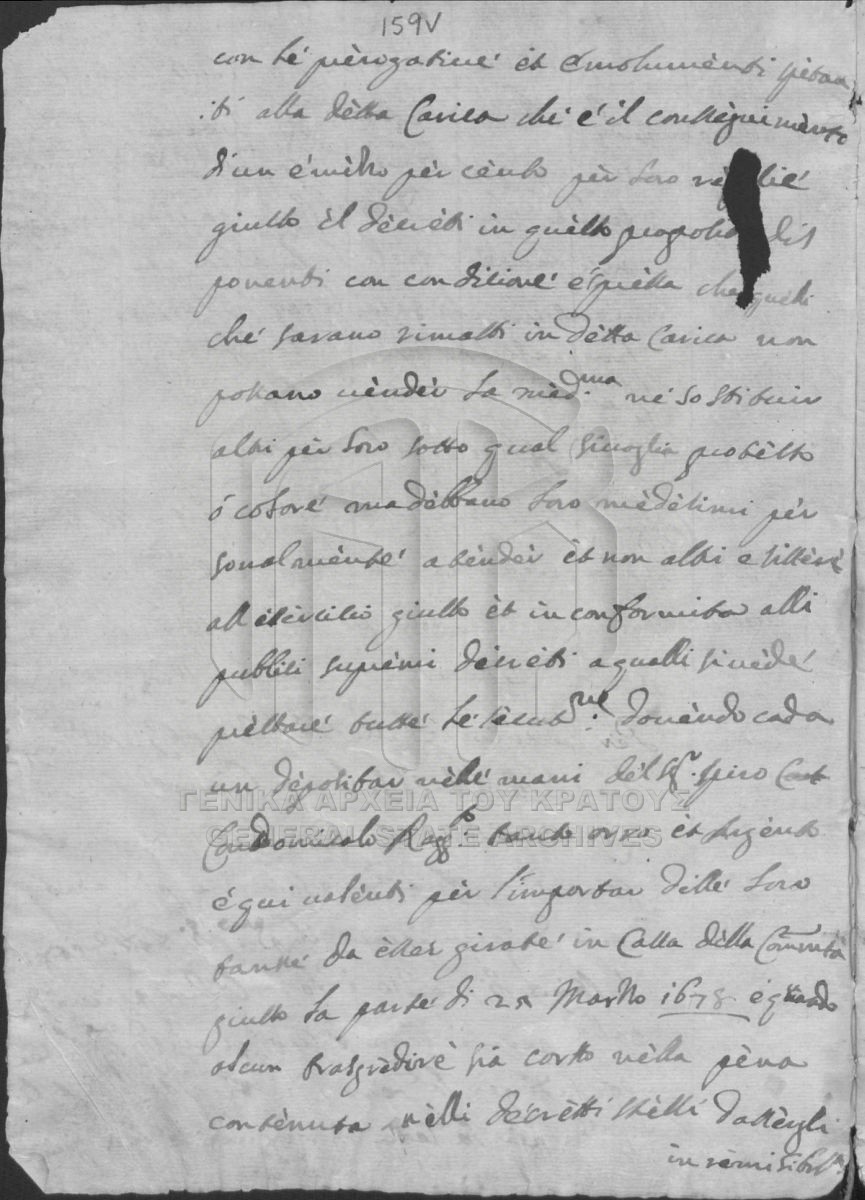 159V
con le prerogative et emolumenti spetan
ti alla detta Carica che è il conseguimento
d'un e mezzo per cento per loro
giusto il decreti in questo proposito dis
ponenti con conditione espressa che quelli
che sarano rimasti in detta Carica non
possano vender la med.ma ne sostituir
altri per loro sotto qual sivoglia protesto
ò colore ma debbano loro medesimi per
sonalmente atender et non altri esister
all esercitio giusto et in conformita alli
publici supremi decreti a qualli si vede
prestare tutte le secut.ne dovendo cada
un depositar nelle mani del Sr. spiro
Condomicalo Ragg.to tanto orro et Argento
equivalenti per l'importar delle loro
tanse da esser girate in Cassa della Com̃nita
giusto la parte di 25 Marzo 1678 e quando
alcun trasgredire sia corso nella pena
contenuta nelli decretti stessi dassergli
in remisibil.
ΓΕΝΙΚΑ ΑΡΧΕΙΑ ΤΟΥ ΚΡΑΤΟΥΣ
GENERAL STATE ARCHIVES